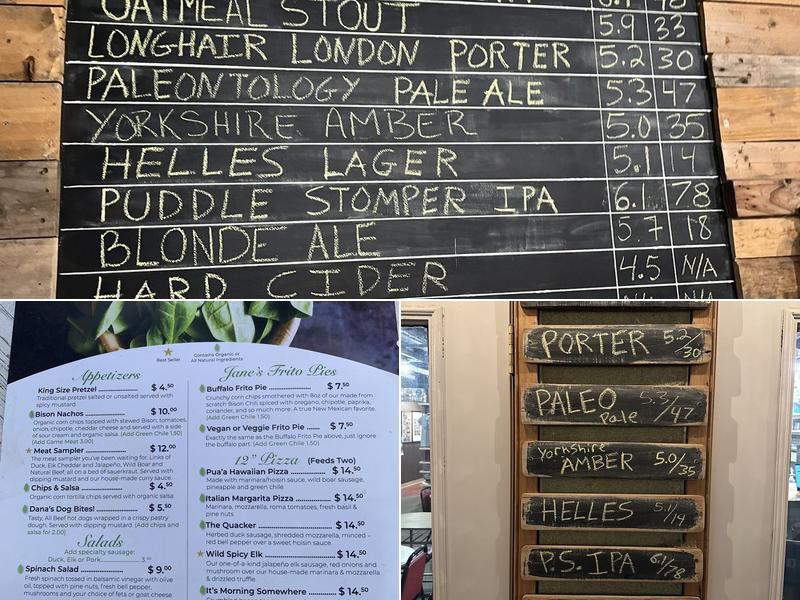 OATMEAL STOUT 5.9 33
LONGHAIR LONDON PORTER 5.2 30
PALEONTOLOGY PALE ALE 5.3 47
YORKSHIRE AMBER 5.0 35
HELLES LAGER 5.1 14
PUDDLE STOMPER IPA 6.1 78
BLONDE ALE 5.7 18
HARD CIDER 4.5 N/A
Best Seller
Contains Organic or
All Natural Ingredients
Appetizers
King Size Pretzel $ 4.50
Traditional pretzel salted or unsalted served with
spicy mustard.
Bison Nachos $ 10.00
Organic corn chips topped with stewed Bison, tomatoes,
onion, chipotle, cheddar cheese and served with a side
of sour cream and organic salsa. (Add Green Chile 1.50)
(Add Game Meat 3.00)
Meat Sampler $ 12.00
The meat sampler you've been waiting for. Links of
Duck, Elk Cheddar and Jalapeño, Wild Boar and
Natural Beef, all on a bed of sauerkraut. Served with
dipping mustard and our house-made curry sauce.
Chips & Salsa $ 4.50
Organic corn tortilla chips served with organic salsa.
Dana's Dog Bites! $ 5.50
Tasty, All Beef hot dogs wrapped in a crispy pastry
dough. Served with dipping mustard. (Add chips and
salsa for 2.00)
Salads
Add specialty sausage:
Duck, Elk or Pork
Spinach Salad $ 9.00
Fresh spinach tossed in balsamic vinegar with olive
oil, topped with pine nuts, fresh bell pepper,
mushrooms and your choice of feta or goat cheese
Jane's Frito Pies
Buffalo Frito Pie $ 7.50
Crunchy corn chips smothered with 8oz of our made from
scratch Bison Chili spiced with oregano, chipotle, paprika,
coriander, and so much more. A true New Mexican favorite.
(Add Green Chile 1.50)
Vegan or Veggie Frito Pie $ 7.50
Exactly the same as the Buffalo Frito Pie above, just ignore
the buffalo part. (Add Green Chile 1.50)
12" Pizza (Feeds Two)
Pua'a Hawaiian Pizza $ 14.50
Made with marinara/hoisin sauce, wild boar sausage,
pineapple and green chile.
Italian Margarita Pizza $ 14.50
Marinara, mozzarella, roma tomatoes, fresh basil &
pine nuts
The Quacker $ 14.50
Herbed duck sausage, shredded mozzarella, minced
red bell pepper over a sweet hoisin sauce.
Wild Spicy Elk $ 14.50
Our one-of-a-kind jalapeño elk sausage, red onions and
mushroom over our house-made marinara & mozzarella
& drizzled truffle
It's Morning Somewhere $ 14.50
PORTER 5.2/30
PALEO Pale 5.3/47
Yorkshire
AMBER 5.0/35
HELLES 5.1/14
P.S. IPA 6.1/78